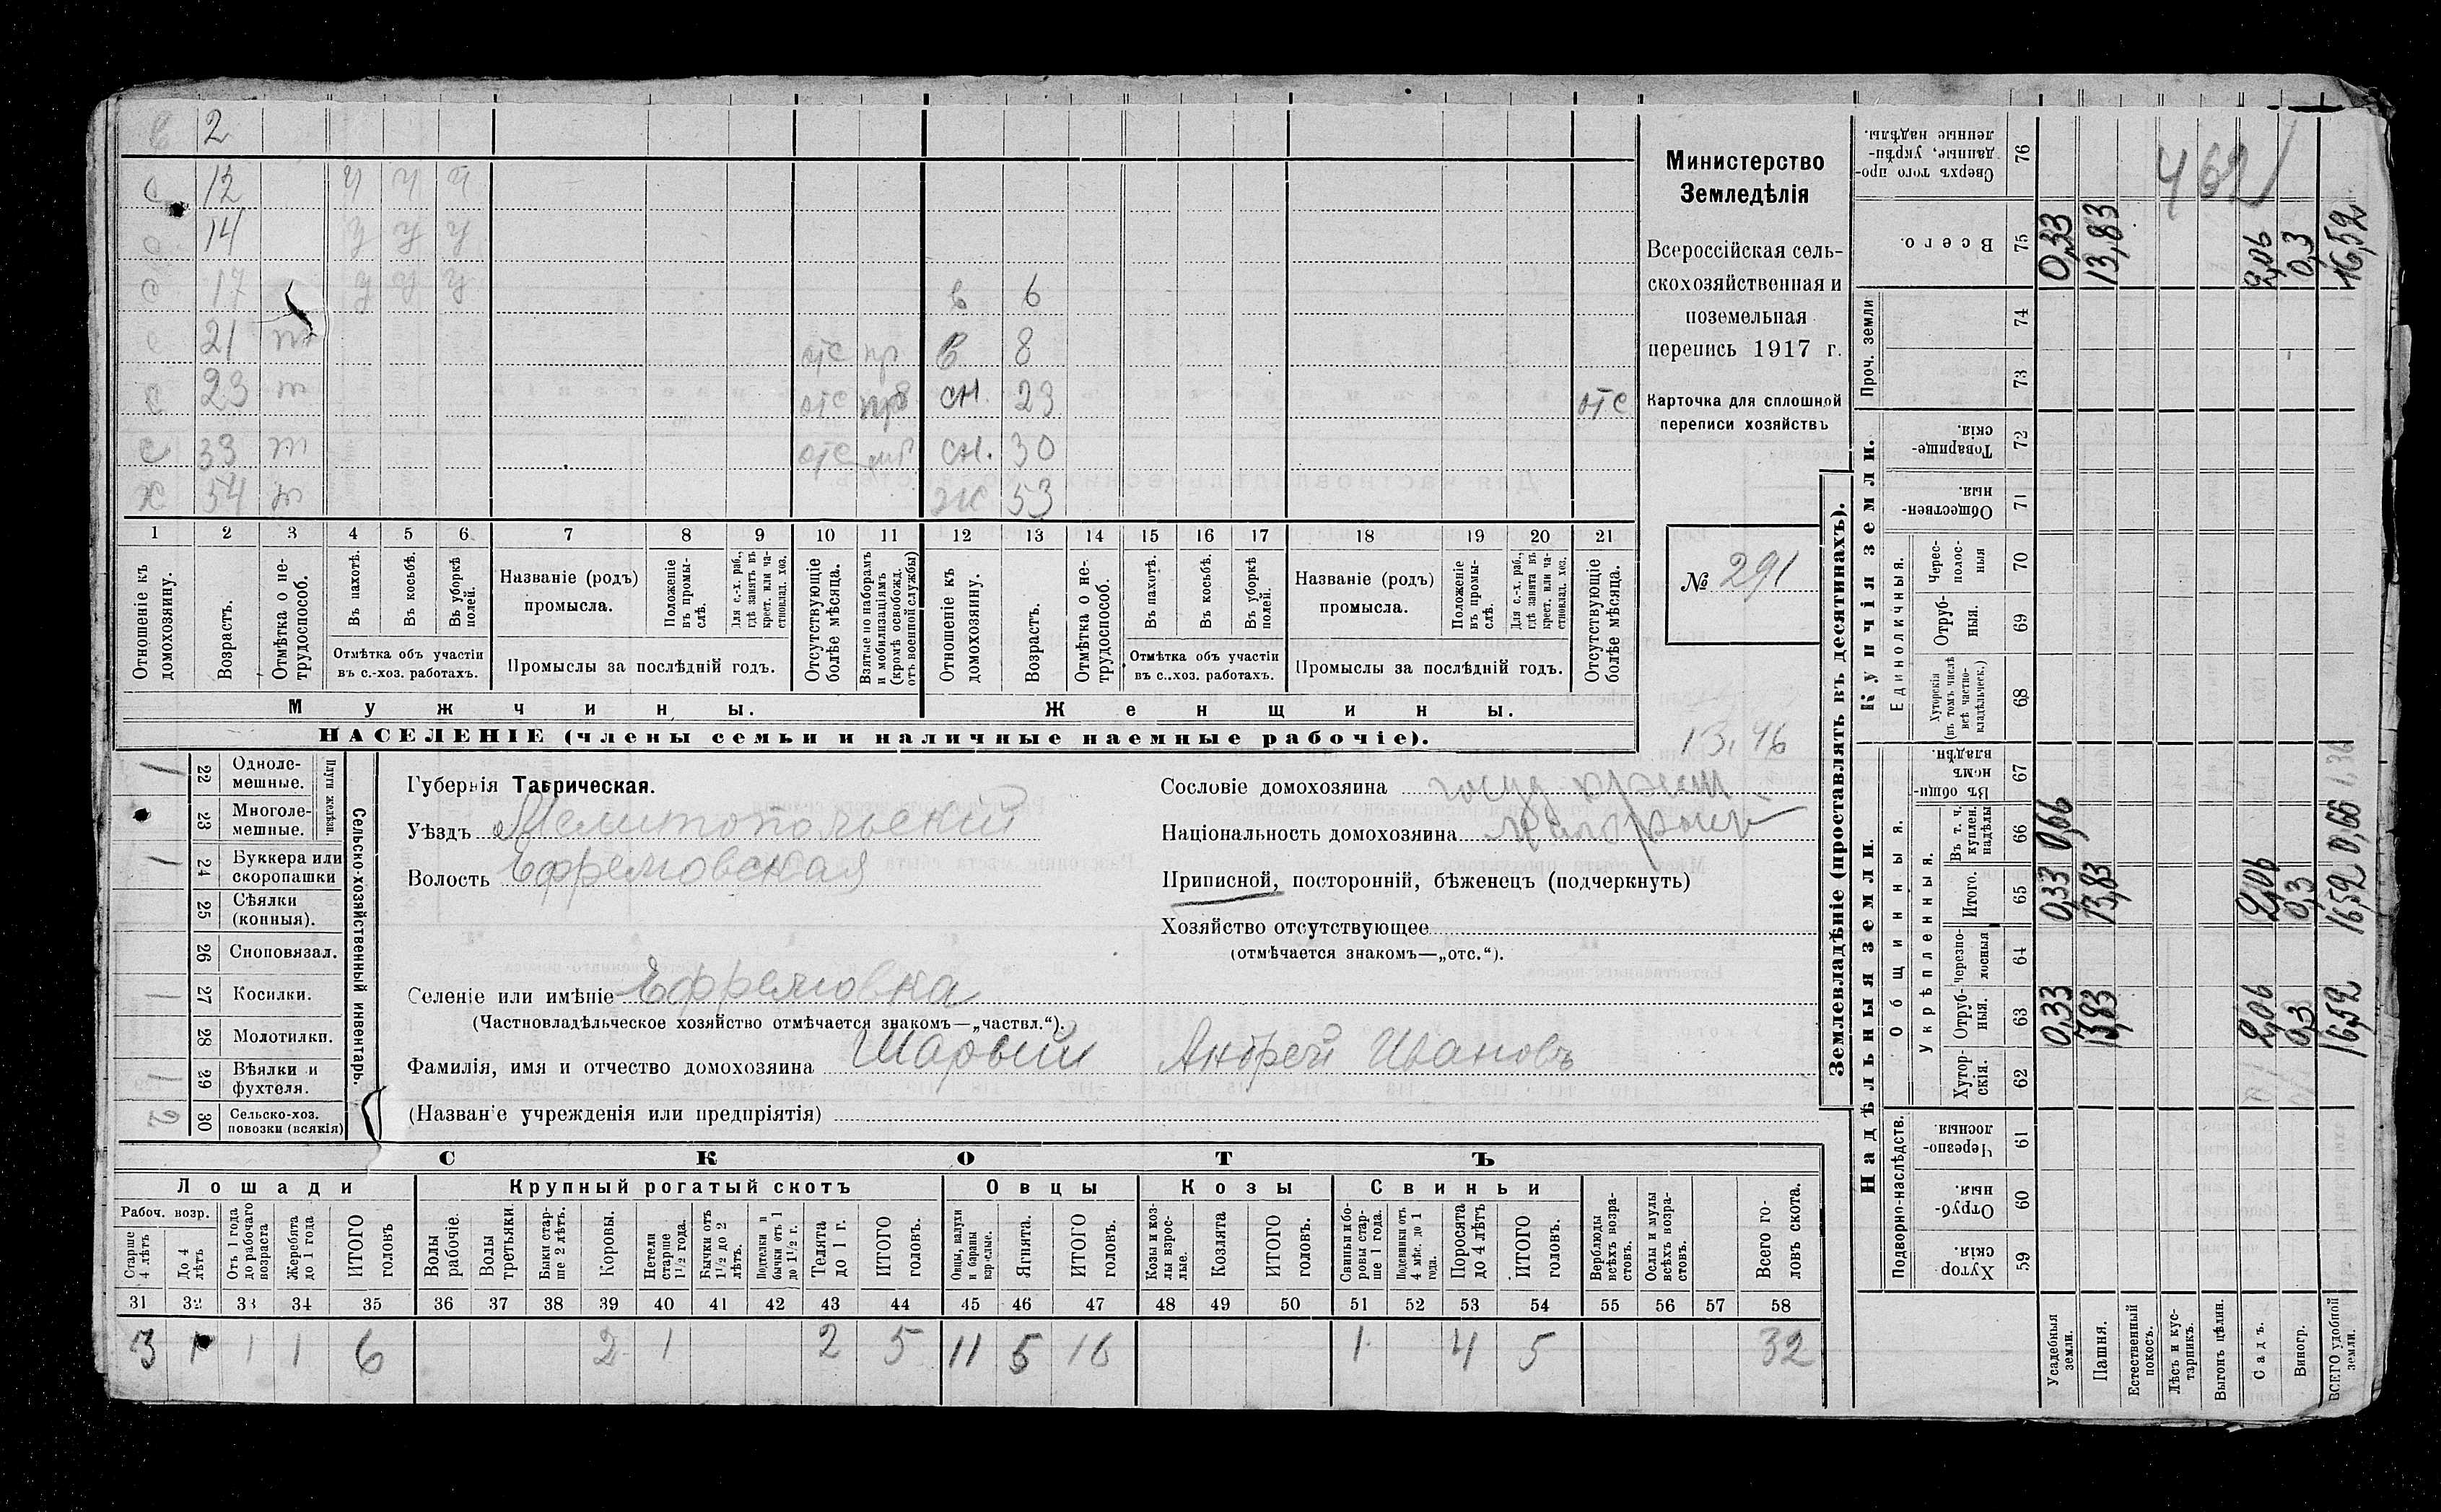 в 2
с 12 у у у
с 14 у у у
с 17 у у у в 6
с 21 т отс пр в 8
с 23 т отс сн. 23 отс
с 33 т отс сн. 30
х 54 т ж 53
1 2 3 4 5 6 7 8 9 10 11 12 13 14 15 16 17 18 19 20 21
Отношеніе къ домохозяину.
Возрастъ.
Отмѣтка о нетрудоспособ.
Въ пахотѣ.
Въ косьбѣ.
Въ уборкѣ полей.
Отмѣтка объ участіи въ с.-хоз. работахъ.
Названіе (родъ) промысла.
Положеніе въ промыслѣ.
Для с.-х. раб., гдѣ занятъ въ крест. или частновлад. хоз.
Промыслы за послѣдній годъ.
Отсутствующіе болѣе мѣсяца.
Взятые по наборамъ и мобилизаціямъ (кромѣ освобожд. отъ военной службы)
Отношеніе къ домохозяину.
Возрастъ.
Отмѣтка о нетрудоспособ.
Въ пахотѣ.
Въ косьбѣ.
Въ уборкѣ полей.
Отмѣтка объ участіи въ с..хоз. работахъ.
Названіе (родъ) промысла.
Положеніе въ промыслѣ.
Для с.-х. раб., гдѣ занята въ крест. или частновлад. хоз.
Промыслы за послѣдній годъ.
Отсутствующіе болѣе мѣсяца.
Мужчины. Женщины.
НАСЕЛЕНІЕ (члены семьи и наличные наемные рабочіе).
Министерство
Земледѣлія
Всероссійская сель-
скохозяйственная и
поземельная
перепись 1917 г.
Карточка для сплошной
переписи хозяйствъ
№ 291
13,46
Сельско-хозяйственный инвентарь.
Плуги желѣзн.
1 22 Одноле-мешные.
23 Многоле-мешные.
1 24 Буккера или скоропашки
25 Сѣялки (конныя).
26 Сноповязал.
1 27 Косилки.
28 Молотилки.
1 29 Вѣялки и фухтеля.
2 30 Сельско-хоз. повозки (всякія)
Губернія Таврическая.
Уѣздъ Мелитопольскій
Волость Ефремовская
Селеніе или имѣніе Ефремовка
(Частновладѣльческое хозяйство отмѣчается знакомъ—„частвл.“).
Фамилія, имя и отчество домохозяина Шаовий Андрей Ивановъ
(Названіе учрежденія или предпріятія)
Сословіе домохозяина госуд. крест.
Національность домохозяина
Приписной, посторонній, бѣженецъ (подчеркнуть)
Хозяйство отсутствующее
(отмѣчается знакомъ—„отс.“).
СКОТЪ
Лошади Крупный рогатый скотъ Овцы Козы Свиньи
Рабоч. возр.
Старше 4 лѣтъ
До 4 лѣтъ
Отъ 1 года до рабочаго возраста
Жеребята до 1 года
ИТОГО головъ
Волы рабочіе.
Волы третьяки.
Быки старше 2 лѣтъ.
Коровы.
Нетели старше 1½ года.
Бычки отъ 1½ до 2 лѣтъ.
Подтелки и бычки отъ 1 до 1½ г.
Телята до 1 г.
ИТОГО головъ.
Овцы, валухи и бараны взрослые.
Ягнята.
ИТОГО головъ.
Козы и козлы взрослые.
Козлята
ИТОГО головъ.
Свиньи и боровы старше 1 года.
Подсвинки отъ 4 мѣс. до 1 года.
Поросята до 4 лѣтъ
ИТОГО головъ.
Верблюды всѣхъ возрастовъ.
Ослы и мулы всѣхъ возрастовъ.
Всего головъ скота.
31 32 33 34 35 36 37 38 39 40 41 42 43 44 45 46 47 48 49 50 51 52 53 54 55 56 57 58
3 1 1 1 6 2 1 2 5 11 5 16 1 4 5 32
Землевладѣніе (проставлять въ десятинахъ).
Надѣльныя земли. Купчія земли. Проч. земли
Подворно-наслѣдств. Общинныя. Единоличныя.
Укрѣпленныя.
59 Хуторскія
60 Отрубныя.
61 Черезполосныя.
62 Хуторскія.
63 Отрубныя.
64 Черезполосныя
65 Итого.
66 Въ т. ч. куплен. надѣлы
67 Въ общинномъ владѣн.
68 Хуторскія (въ томъ числѣ всѣ частновладѣльческ.)
69 Отрубныя.
70 Чересполосныя
71 Общественныя.
72 Товарищескія.
73
74
75 Всего.
76 Сверхъ того проданные, укрѣпленные надѣлы.
Усадебныя земли. 0,33 0,33 0,66 0,33
Пашня. 13,83 13,83 13,83
Естественный покосъ.
Лѣсъ и кустарникъ.
Выгонъ цѣлин.
Садъ. 2,06 2,06 2,06
Виногр. 0,3 0,3 0,3
ВСЕГО удобной земли. 16,52 16,52 0,66 1,36 16,52
462